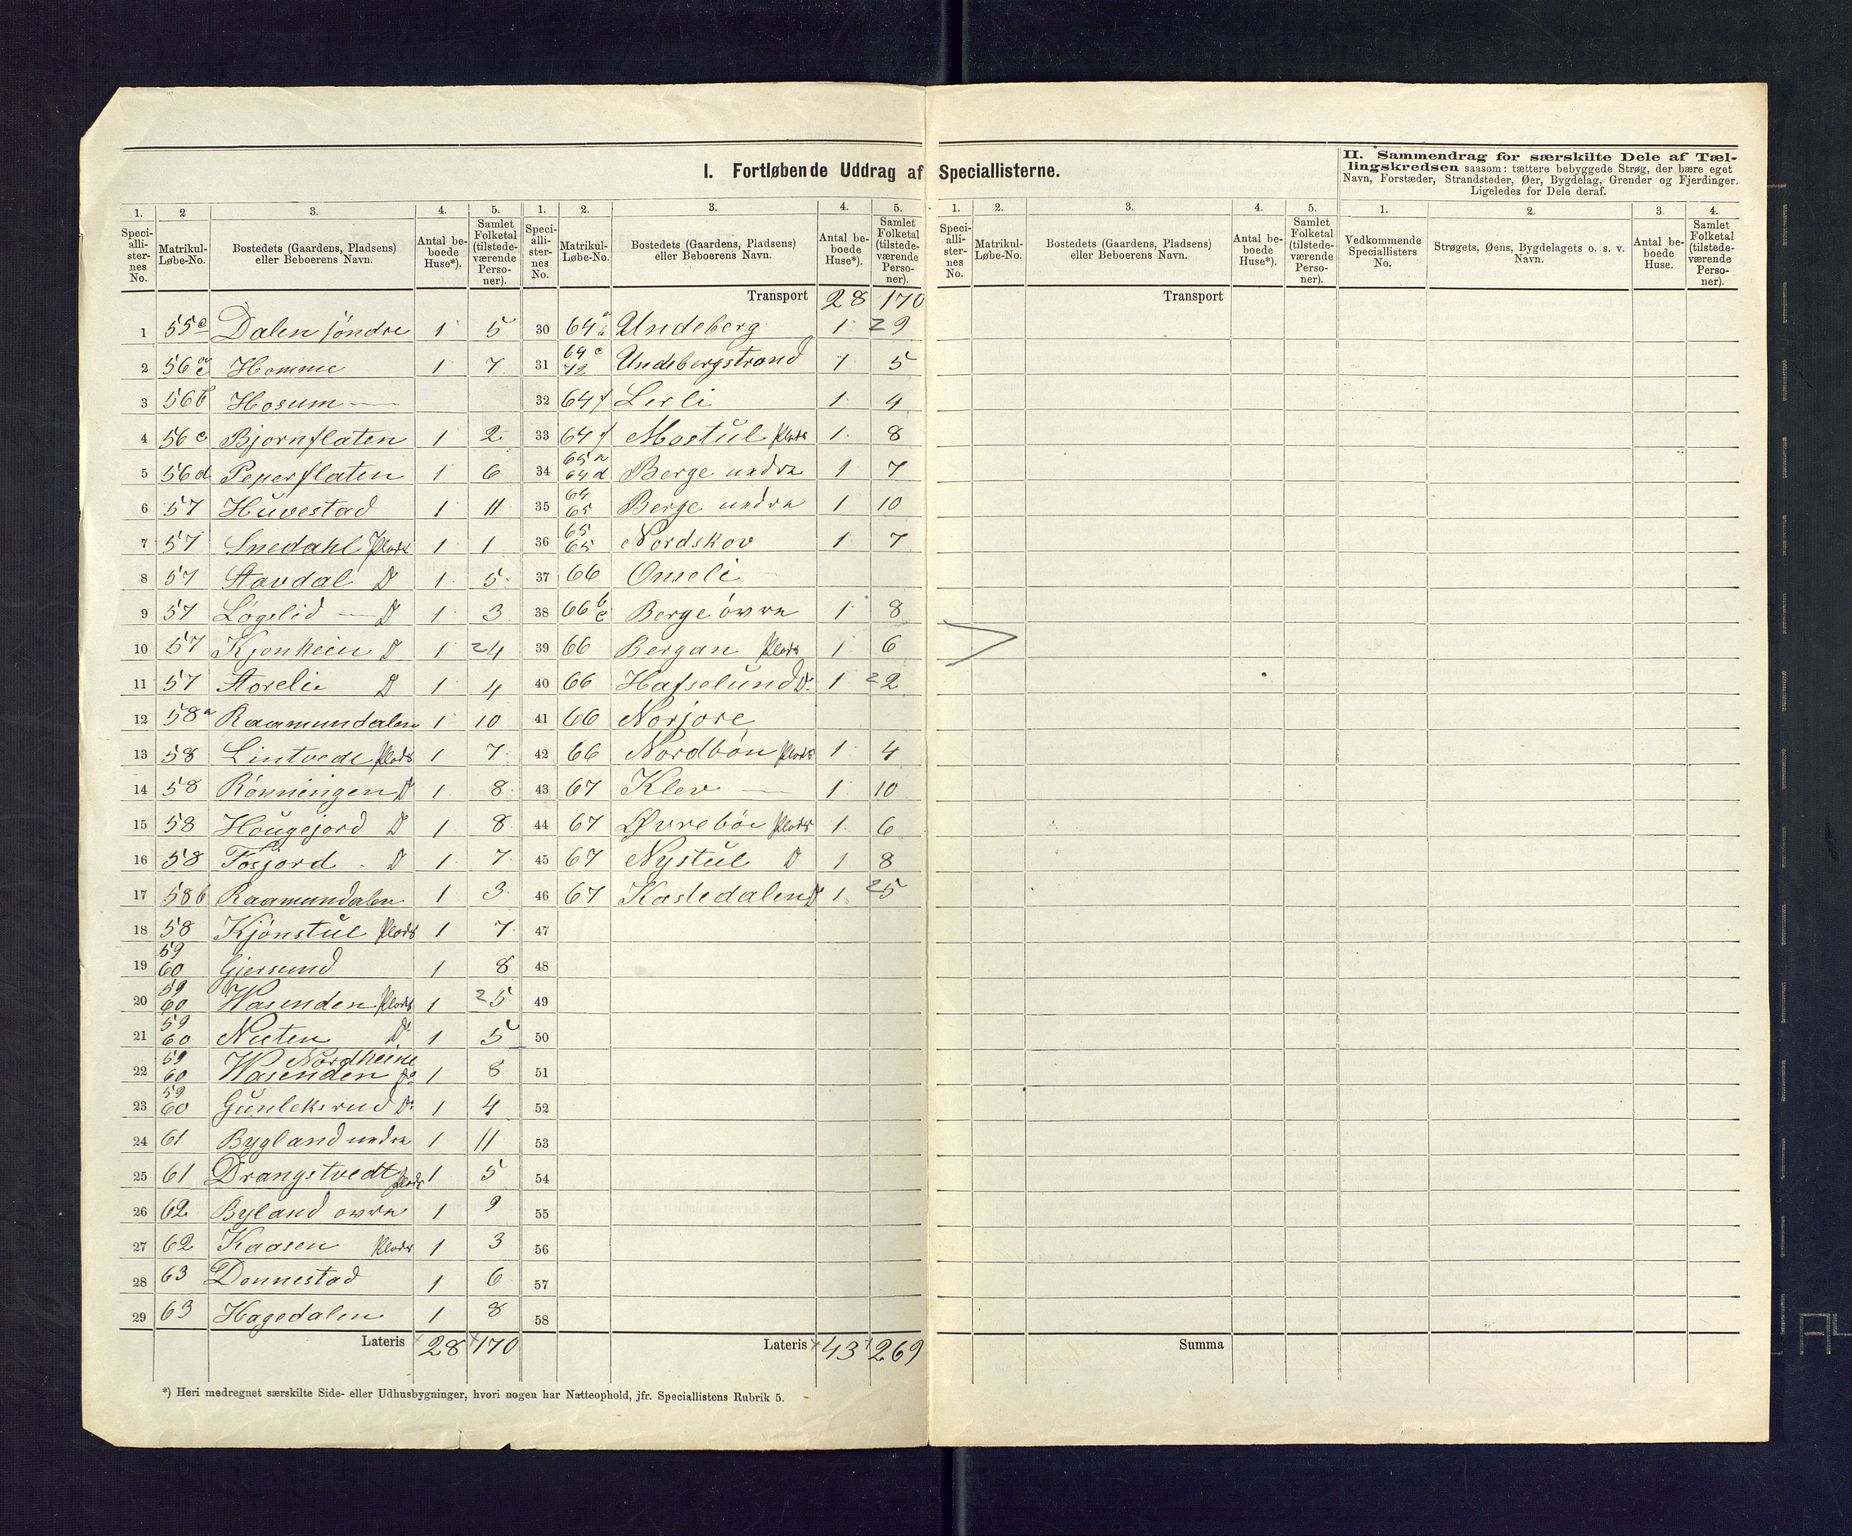 I. Fortløbende Uddrag af Speciallisterne.
II. Sammendrag for særskilte Dele af Tæl-
lingskredsen saasom: tættere bebyggede Strøg, der bære eget
Navn, Forstæder, Strandsteder, Øer, Bygdelag, Grender og Fjerdinger.
Ligeledes for Dele deraf.
1. 2 3. 4. 5. 1. 2. 3. 4. 5. 1. 2. 3. 4. 5. 1. 2. 3. 4.
Speciallisternes No. Matrikul-Løbe-No. Bostedets (Gaardens, Pladsens) eller Beboerens Navn. Antal beboede Huse*). Samlet Folketal (tilstedeværende Personer).
Speciallisternes No. Matrikul-Løbe-No. Bostedets (Gaardens, Pladsens) eller Beboerens Navn. Antal beboede Huse*). Samlet Folketal (tilstedeværende Personer).
Speciallisternes No. Matrikul-Løbe-No. Bostedets (Gaardens, Pladsens) eller Beboerens Navn. Antal beboede Huse*). Samlet Folketal (tilstedeværende Personer).
Vedkommende Speciallisters No. Strøgets, Øens, Bygdelagets o. s. v. Navn. Antal beboede Huse. Samlet Folketal (tilstedeværende Personer).
1 55c Dalen söndre 1 5
2 56 a c Homme 1 7
3 56b Hosum
4 56c Bjornflaten 1 2
5 56d Peperflaten 1 6
6 57 Huvestad 1 11
7 57 Snedahl Plads 1 1
8 57 Stavdal D 1 5
9 57 Løgelid D 1 3
10 57 Kjonheim D 1 4
11 57 Storelie D 1 4
12 58a Raamundalen 1 10
13 58 Lintvedt Plads 1 7
14 58 Rönningen D 1 8
15 58 Hougejord D 1 8
16 58 Fosjord D 1 7
17 58b Raamundalen 1 3
18 58 Kjönstul Plads 1 7
19 59 60 Gjersund 1 8
20 59 60 Wasenden Plads 1 5
21 59 60 Nuten Do 1 5
22 59 60 Nordheim Wasenden Do 1 8
23 59 60 Gunleksrud Do 1 4
24 61 Bygland nedre 1 11
25 61 Drangstvedt Plads 1 5
26 62 Byland ovre 1 9
27 62 Kaasen Plads 1 3
28 63 Donnestad 1 6
29 63 Hagedalen 1 8
Lateris 28 170
Transport 28 170
30 64 Undeberg 1 2 9
31 64c 72 Undebergstrand 1 5
32 64f Lerli 1 4
33 64f Mostul Plads 1 8
34 65a 64d Berge nedre 1 7
35 64 65 Berge nedre 1 10
36 65 65 Nordskov 1 7
37 66 Omseli
38 66 b c Berge övre 1 8
39 66 Bergan Plads 1 6
40 66 Hafselund Do 1 2 2
41 66 Norjore
42 66 Nordbön Plads 1 4
43 67 Klev 1 10
44 67 Øvrebön Plads 1 6
45 67 Nystul D 1 8
46 67 Kastedalen D 1 2 5
47
48
49
50
51
52
53
54
55
56
57
58
Lateris 43 269
Transport
Summa
*) Heri medregnet særskilte Side- eller Udhusbygninger, hvori nogen har Natteophold, jfr. Speciallistens Rubrik 5.